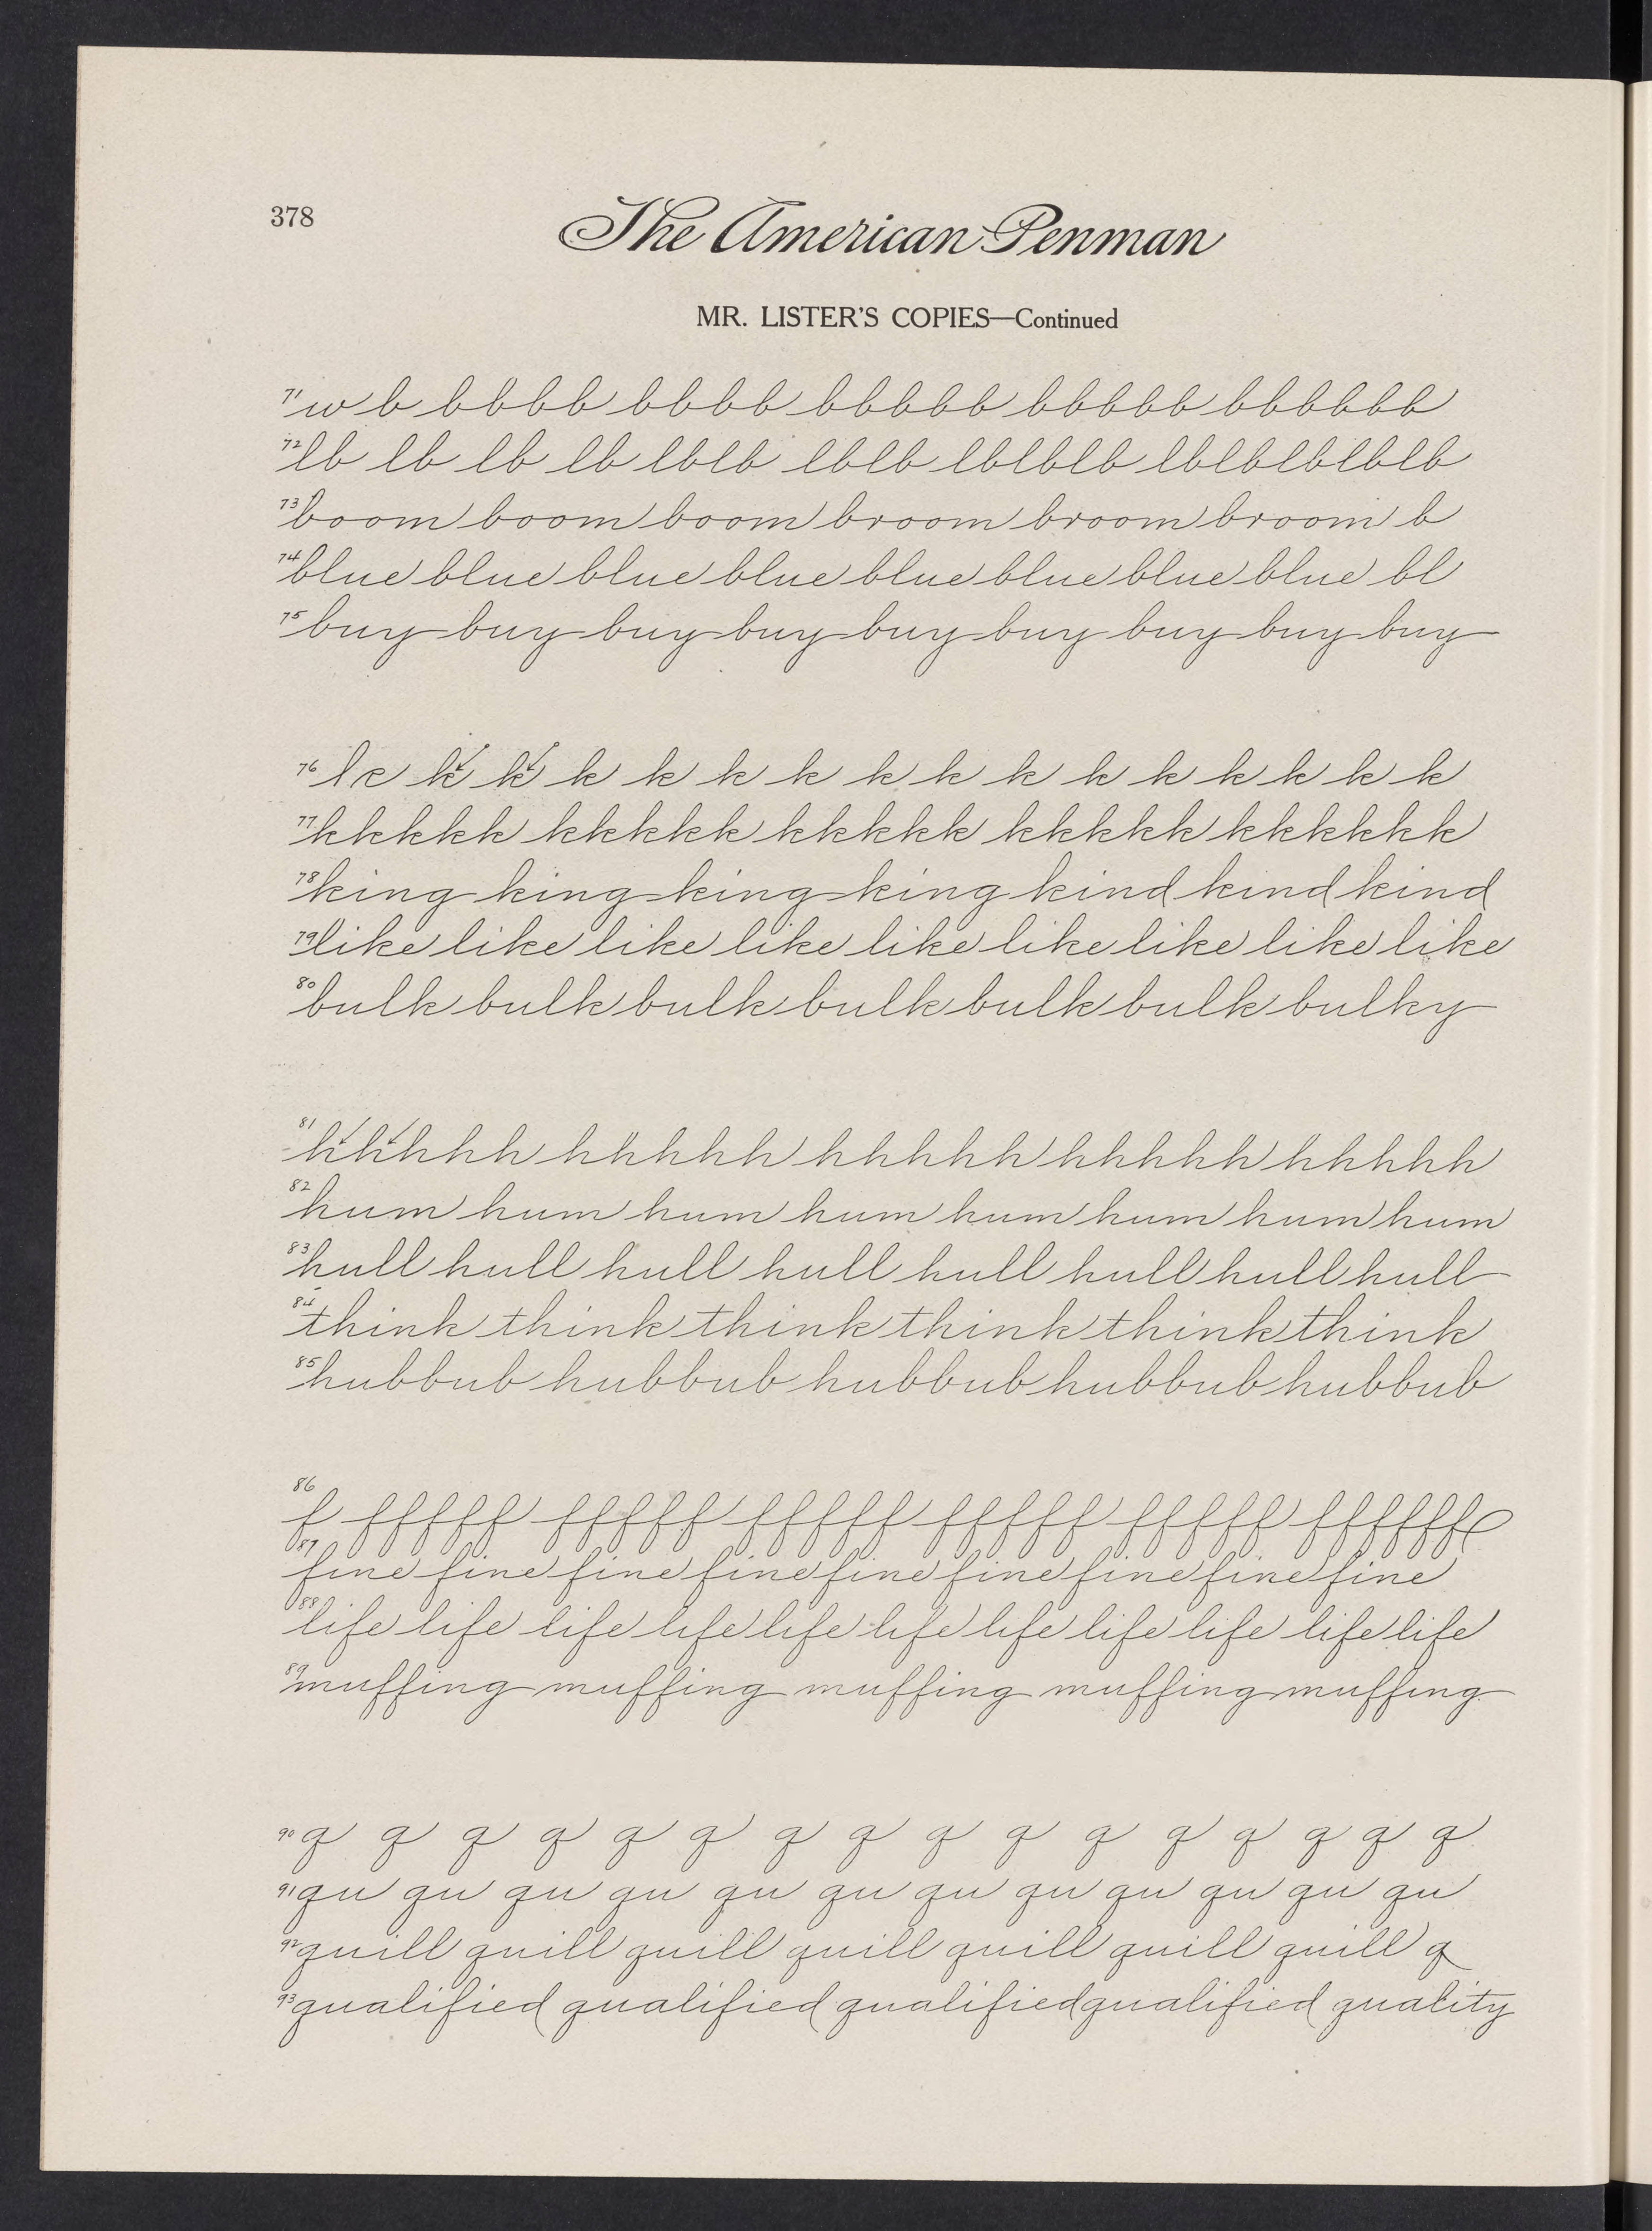 378
The American Penman
MR. LISTER'S COPIES—Continued
71 w b bbbb bbbb bbbbb bbbbb bbbbbb
72 lb lb lb lb lblb lblb lblblb lblblblblb
73 boom boom boom broom broom broom b
74 blue blue blue blue blue blue blue blue bl
75 buy buy buy buy buy buy buy buy buy
76 l e k k k k k k k k k k k k k k k
77 kkkkk kkkkk kkkkk kkkkk kkkkkk
78 king king king king kind kind kind
79 like like like like like like like like like
80 bulk bulk bulk bulk bulk bulk bulky
81 hhhhh hhhhh hhhhh hhhhh hhhhh
82 hum hum hum hum hum hum hum hum
83 hull hull hull hull hull hull hull hull
84 think think think think think think
85 hubbub hubbub hubbub hubbub hubbub
86 f fffff fffff fffff fffff fffff ffffff
87 fine fine fine fine fine fine fine fine fine
88 life life life life life life life life life life life
89 muffing muffing muffing muffing muffing
90 q q q q q q q q q q q q q q q q
91 qu qu qu qu qu qu qu qu qu qu qu qu
92 quill quill quill quill quill quill quill q
93 qualified qualified qualified qualified quality